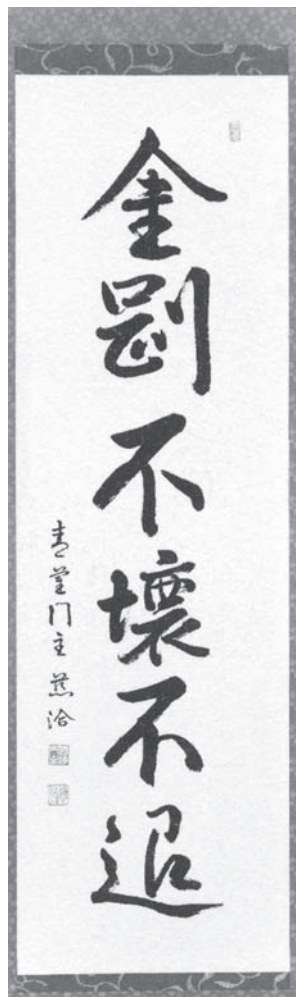 金剛不壊不退
青蓮門主慈洽